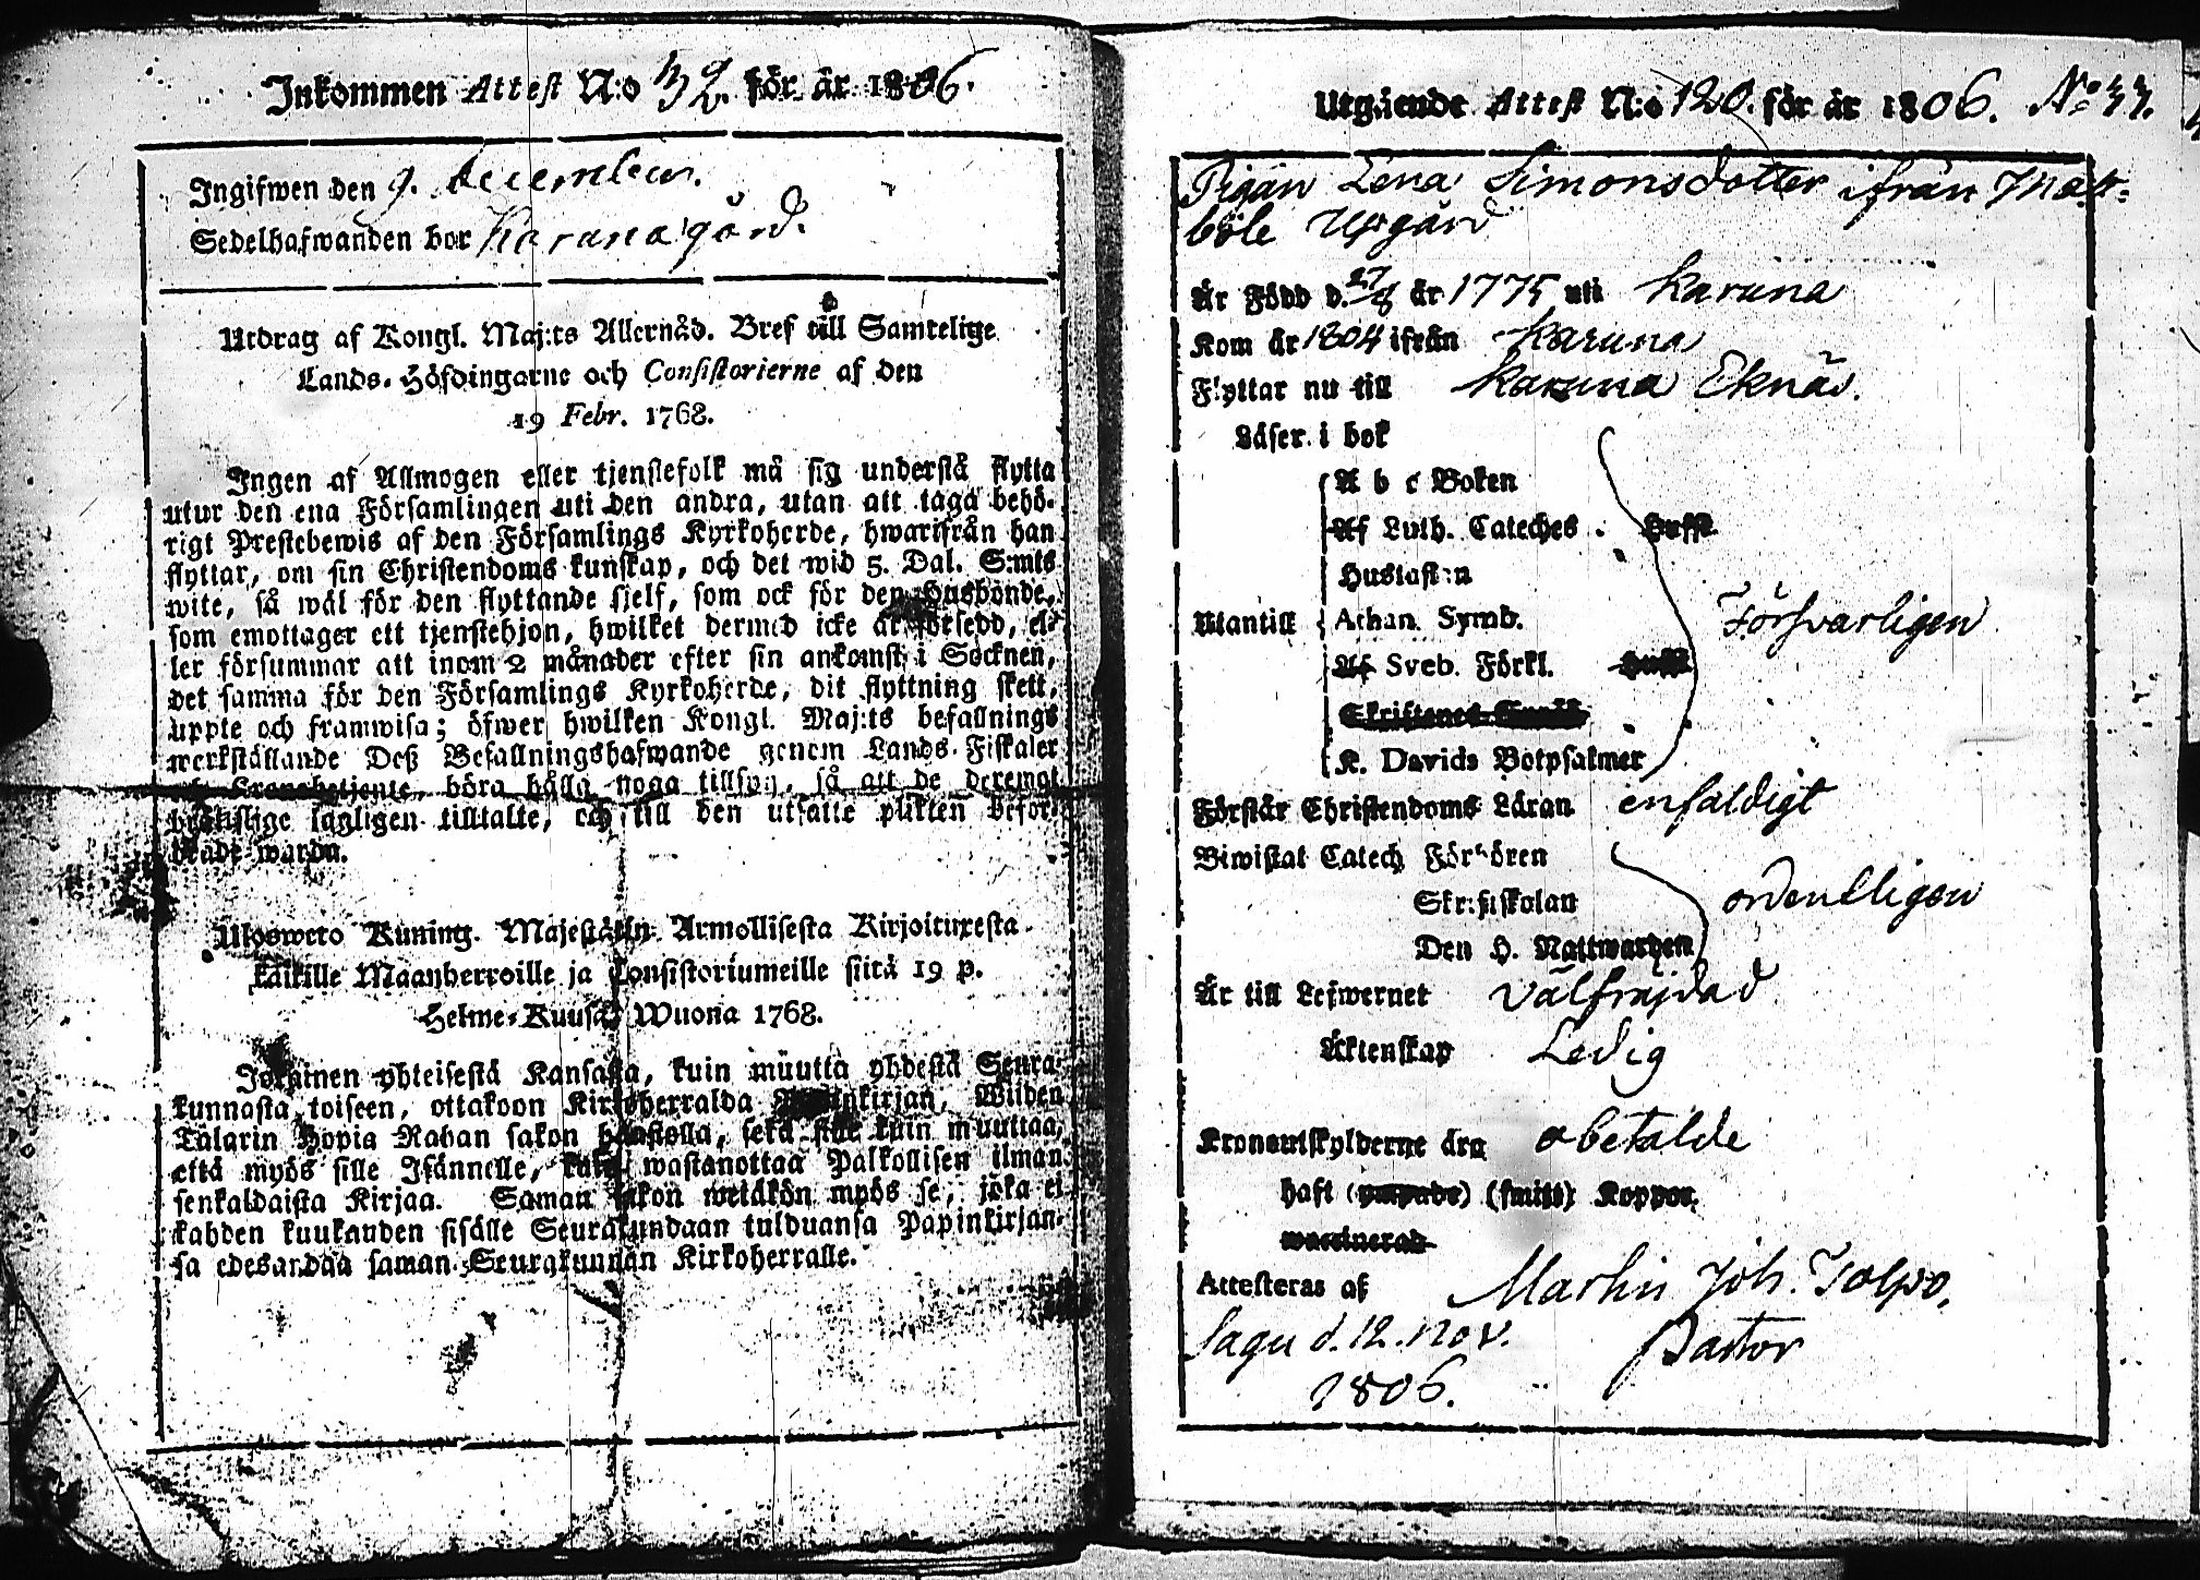 Inkommen Attest N:o 32. för år 1806.
Ingifwen den 9. December.
Sedelhafwanden bor Karunagård.
Utdrag af Kongl. Maj:ts Allernåd. Bref till Samtelige
Lands-Höfdingarne och Consistorierne af den
19 Febr. 1768.
Ingen af Allmogen eller tjenstefolk må sig understå flytta
utur den ena Församlingen uti den andra, utan att taga behö-
rigt Prestebewis af den Församlings Kyrkoherde, hwarifrån han
flyttar, om sin Christendoms kunskap, och det wid 5. Dal. S:mts
wite, så wäl för den flyttande sjelf, som ock för den Husbonde,
som emottager ett tjenstehjon, hwilket dermed icke är försedd, el-
ler försummar att inom 2 månader efter sin ankomst i Socknen,
det samma för den Församlings Kyrkoherde, dit flyttning skett,
uppte och framwisa; öfwer hwilken Kongl. Maj:ts befallnings
werkställande Deß Befallningshafwande genom Lands-Fiskaler
Kronobetjente, böra hålla noga tillsyn, så att de deremot
brottslige lagligen tilltalte, och till den utsatte plikten befor-
drade warda.
Ulosweto Kuning. Majestätin Armollisesta Kirjoituxesta
kaikille Maanherroille ja Consistoriumeille siitä 19 p.
Helme-Kuusa Wuona 1768.
Jokainen yhteisestä Kansasta, kuin muutta yhdestä Seura-
kunnasta toiseen, ottakoon Kirkoherralda Papinkirjan, Wiiden
Talarin Hopia Rahan sakon haastolla, sekä se kuin muuttaa,
että myös sille Isännelle, kuin wastanottaa Palkollisen ilman
senkaldaista Kirjaa. Saman sakon wetäkön myös se, joka ei
kahden kuukauden sisälle Seurakundaan tulduansa Papinkirjan-
sa edesandaa saman Seurakunnan Kirkoherralle.
Utgående Attest N:o 120. för år 1806. No 33.
Pigan Lena Simonsdotter ifrån Matt-
böle Upgård
Är Född d. 27/8 år 1775 uti Karuna
Kom år 1804 ifrån Karuna
Flyttar nu till Karuna Eknäs.
Läser i bok
A b c Boken
Af Luth. Cateches.
Hustaflan
Utantill Athan. Symb.
Af Sveb. Förkl.
Försvarligen
K. Davids Botpsalmer
Förstår Christendoms Läran enfaldigt
Biwistat Catech Förhören
Skriftskolan ordentligen
Den H. Nattwarden
Är till Lefwernet välfrejdad
Äktenskap Ledig
Kronoutskylderne äro obetalde
haft (ympade) (smitt) Koppor.
waccinerad
Attesteras af Martin Joh. Tolpo,
Sagu d. 12. Nov. Pastor
1806.